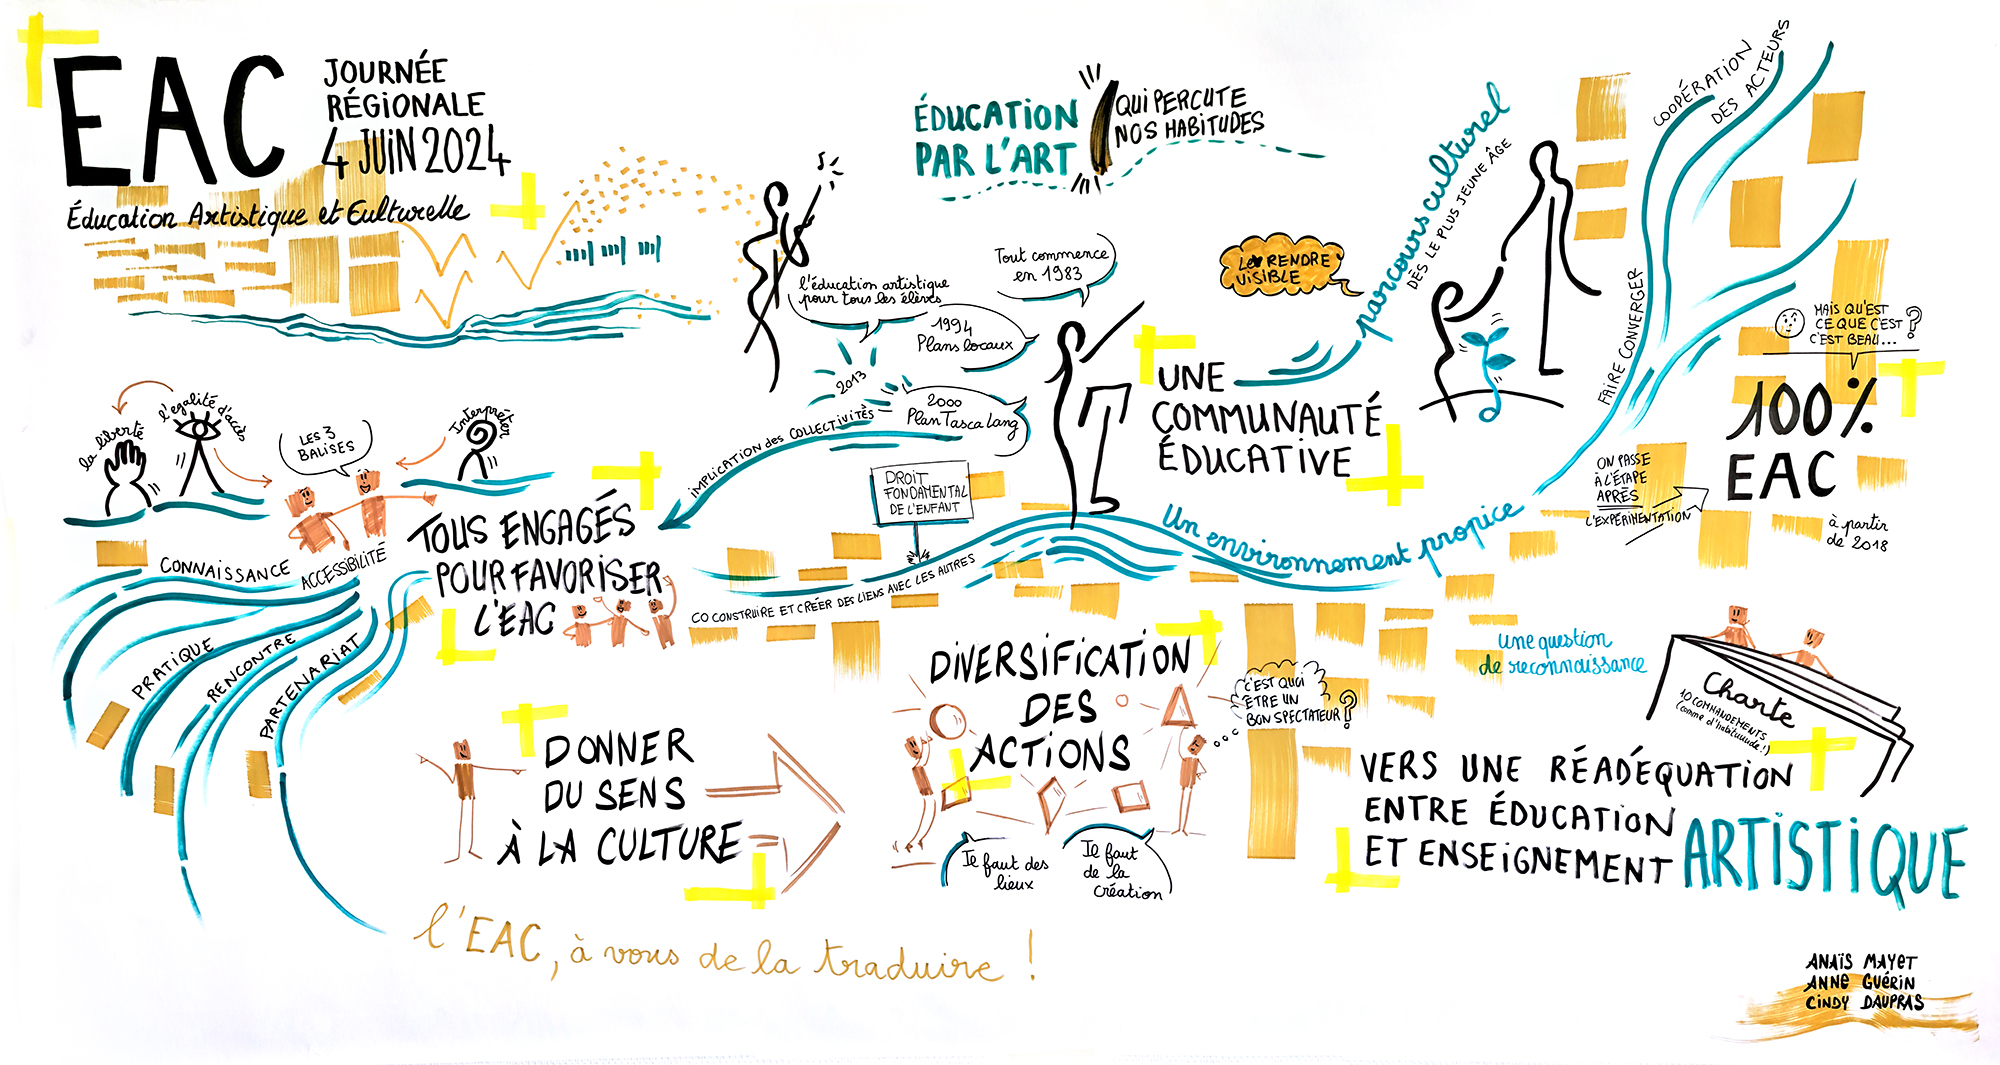 EAC
JOURNÉE
RÉGIONALE
4 JUIN 2024
Éducation Artistique et Culturelle
ÉDUCATION
PAR L'ART
QUI PERCUTE
NOS HABITUDES
Tout commence
en 1983
l'éducation artistique
pour tous les élèves
1994
Plans locaux
2013
2000
Plan Tasca Lang
IMPLICATION des COLLECTIVITÉS
LE RENDRE
VISIBLE
parcours culturel
DÈS LE PLUS JEUNE ÂGE
COOPÉRATION
DES ACTEURS
FAIRE CONVERGER
UNE
COMMUNAUTÉ
ÉDUCATIVE
MAIS QU'EST
CE QUE C'EST
C'EST BEAU... ?
100%
EAC
à partir
de 2018
ON PASSE
À L'ÉTAPE
APRÈS
L'EXPÉRIMENTATION
la liberté
l'égalité d'accès
LES 3
BALISES
Interpréter
TOUS ENGAGÉS
POUR FAVORISER
L'EAC
DROIT
FONDAMENTAL
DE L'ENFANT
Un environnement propice
CO CONSTRUIRE ET CRÉER DES LIENS AVEC LES AUTRES
CONNAISSANCE
ACCESSIBILITÉ
PRATIQUE
RENCONTRE
PARTENARIAT
DONNER
DU SENS
À LA CULTURE
DIVERSIFICATION
DES
ACTIONS
C'EST QUOI
ÊTRE UN
BON SPECTATEUR ?
Il faut des
lieux
Il faut
de la
création
une question
de reconnaissance
Charte
10 COMMANDEMENTS
(comme d'habituuude!)
VERS UNE RÉADÉQUATION
ENTRE ÉDUCATION
ET ENSEIGNEMENT ARTISTIQUE
l'EAC, à vous de la traduire !
ANAÏS MAYET
ANNE GUÉRIN
CINDY DAUPRAS